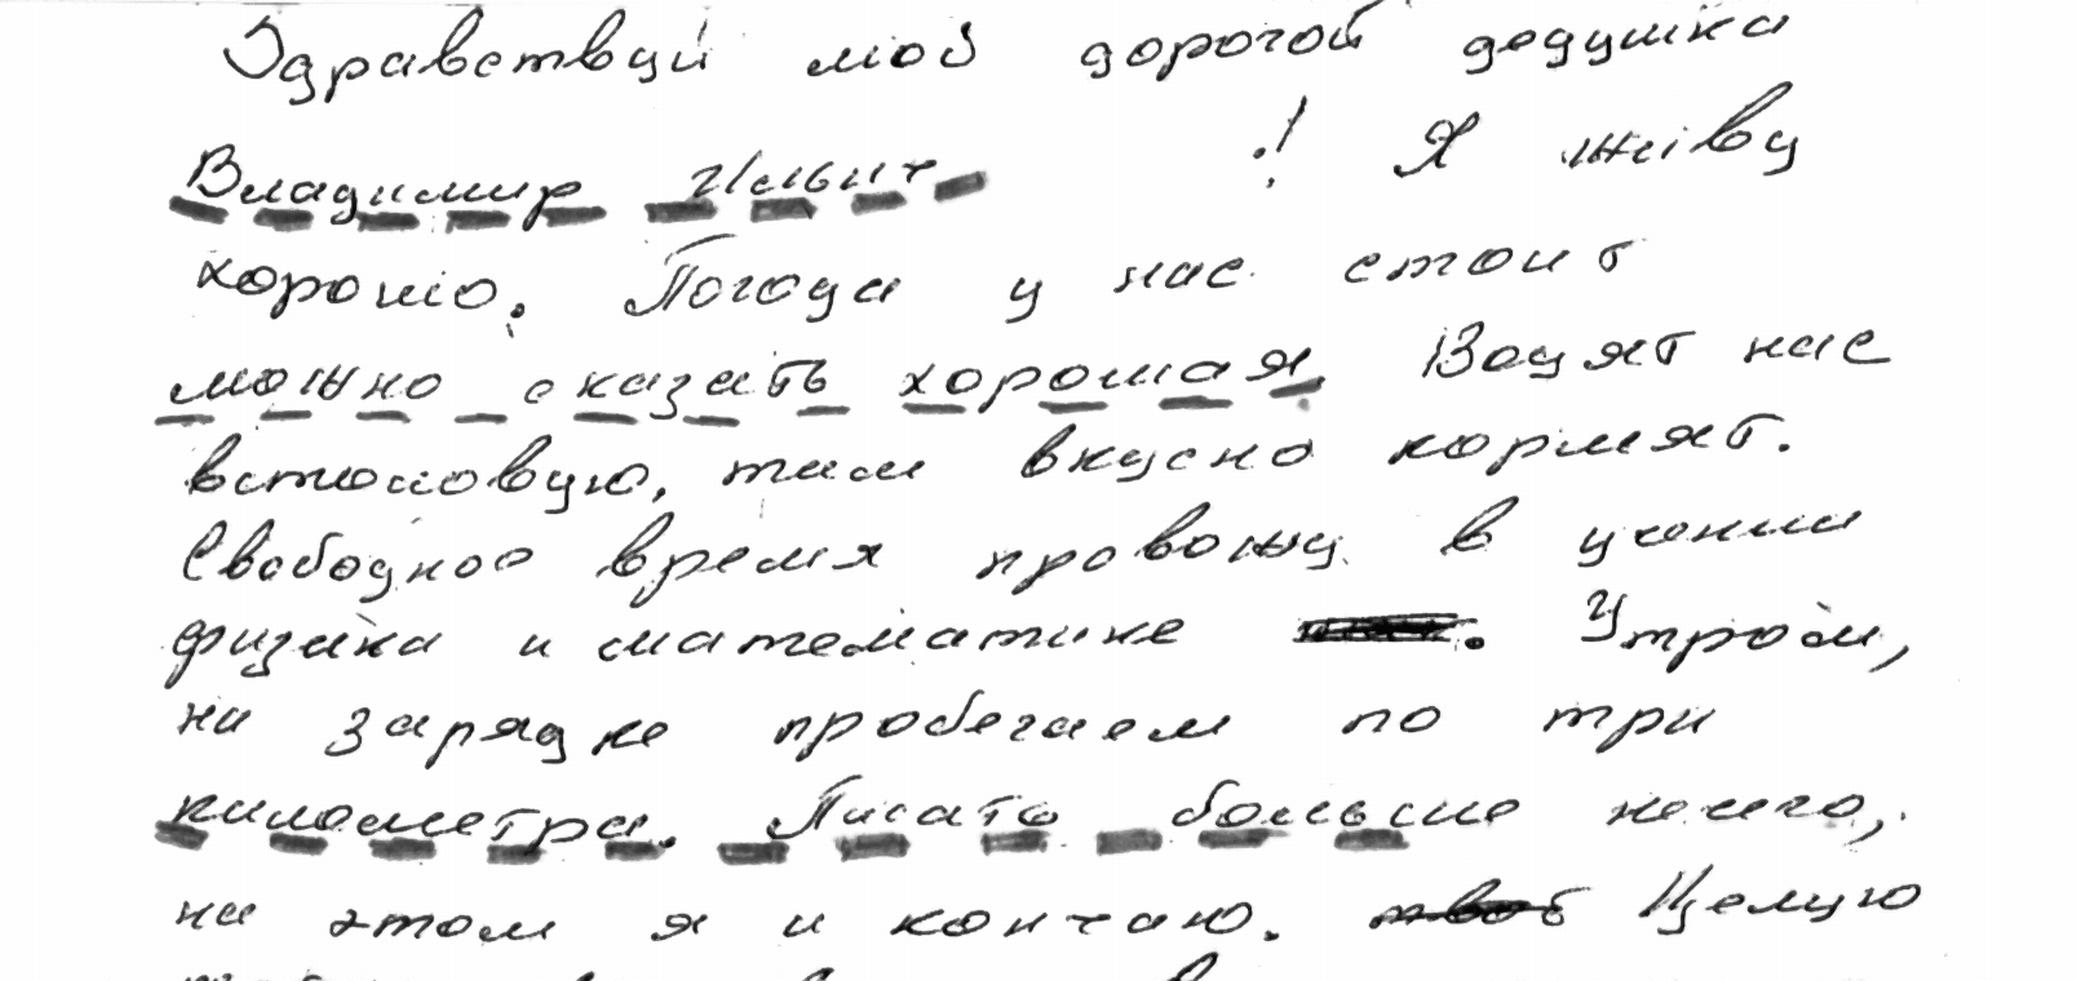 Здравствуй мой дорогой дедушка
Владимир Ильич ! Я живу
хорошо. Погода у нас стоит
можно сказать хорошая. Водят нас
встоловую, там вкусно кормят.
Свободное время провожу в учении
физика и математике . Утром,
на зарядке пробегаем по три
километра. Писать больше нечего,
на этом я и кончаю. Целую